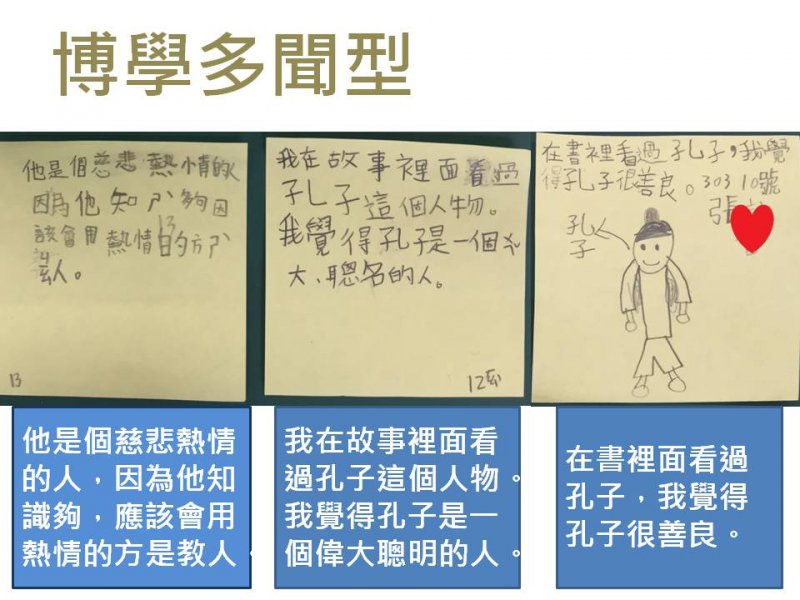 博學多聞型
他是個慈悲熱情的人
因為他知ㄕ夠因
該會用熱情的方ㄕ
人。
13
我在故事裡面看過
孔子這個人物。
我覺得孔子是一個ㄨ
大、聰名的人。
12
在書裡看過孔子,我覺
得孔子很善良。303 10號
張
孔
子
他是個慈悲熱情
的人,因為他知
識夠,應該會用
熱情的方是教人。
我在故事裡面看
過孔子這個人物。
我覺得孔子是一
個偉大聰明的人。
在書裡面看過
孔子,我覺得
孔子很善良。